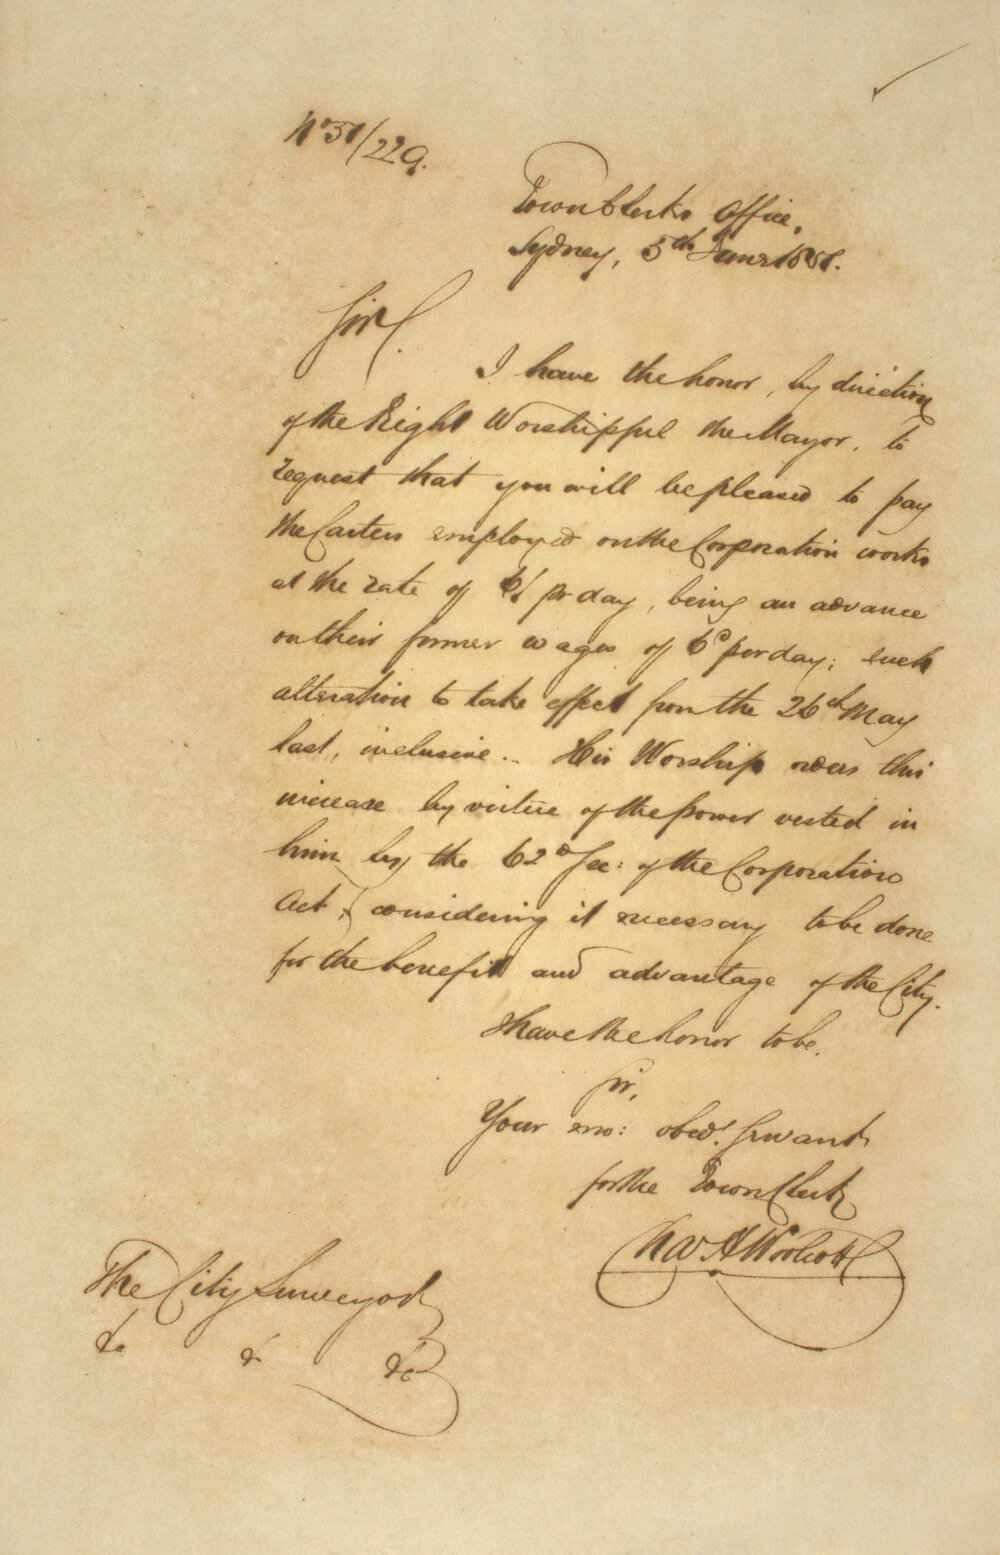 No 51/229.
Town Clerks Office,
Sydney, 5th June 1851.
Sir,
I have the honor, by direction
of the Right Worshipful the Mayor, to
request that you will be pleased to pay
the Carters employed on the Corporation works
at the rate of 6/. pr day, being an advance
on their former wages of 6d per day; such
alteration to take effect from the 26th May
last, inclusive. His Worship orders this
increase by virtue of the power vested in
him by the 62d Sec: of the Corporation
Act, considering it necessary to be done
for the benefit and advantage of the City.
I have the honor to be,
Sir,
Your mo: obedt. Servant
for the Town Clerk
Chas H Woolcott
The City Surveyor
&c & &c